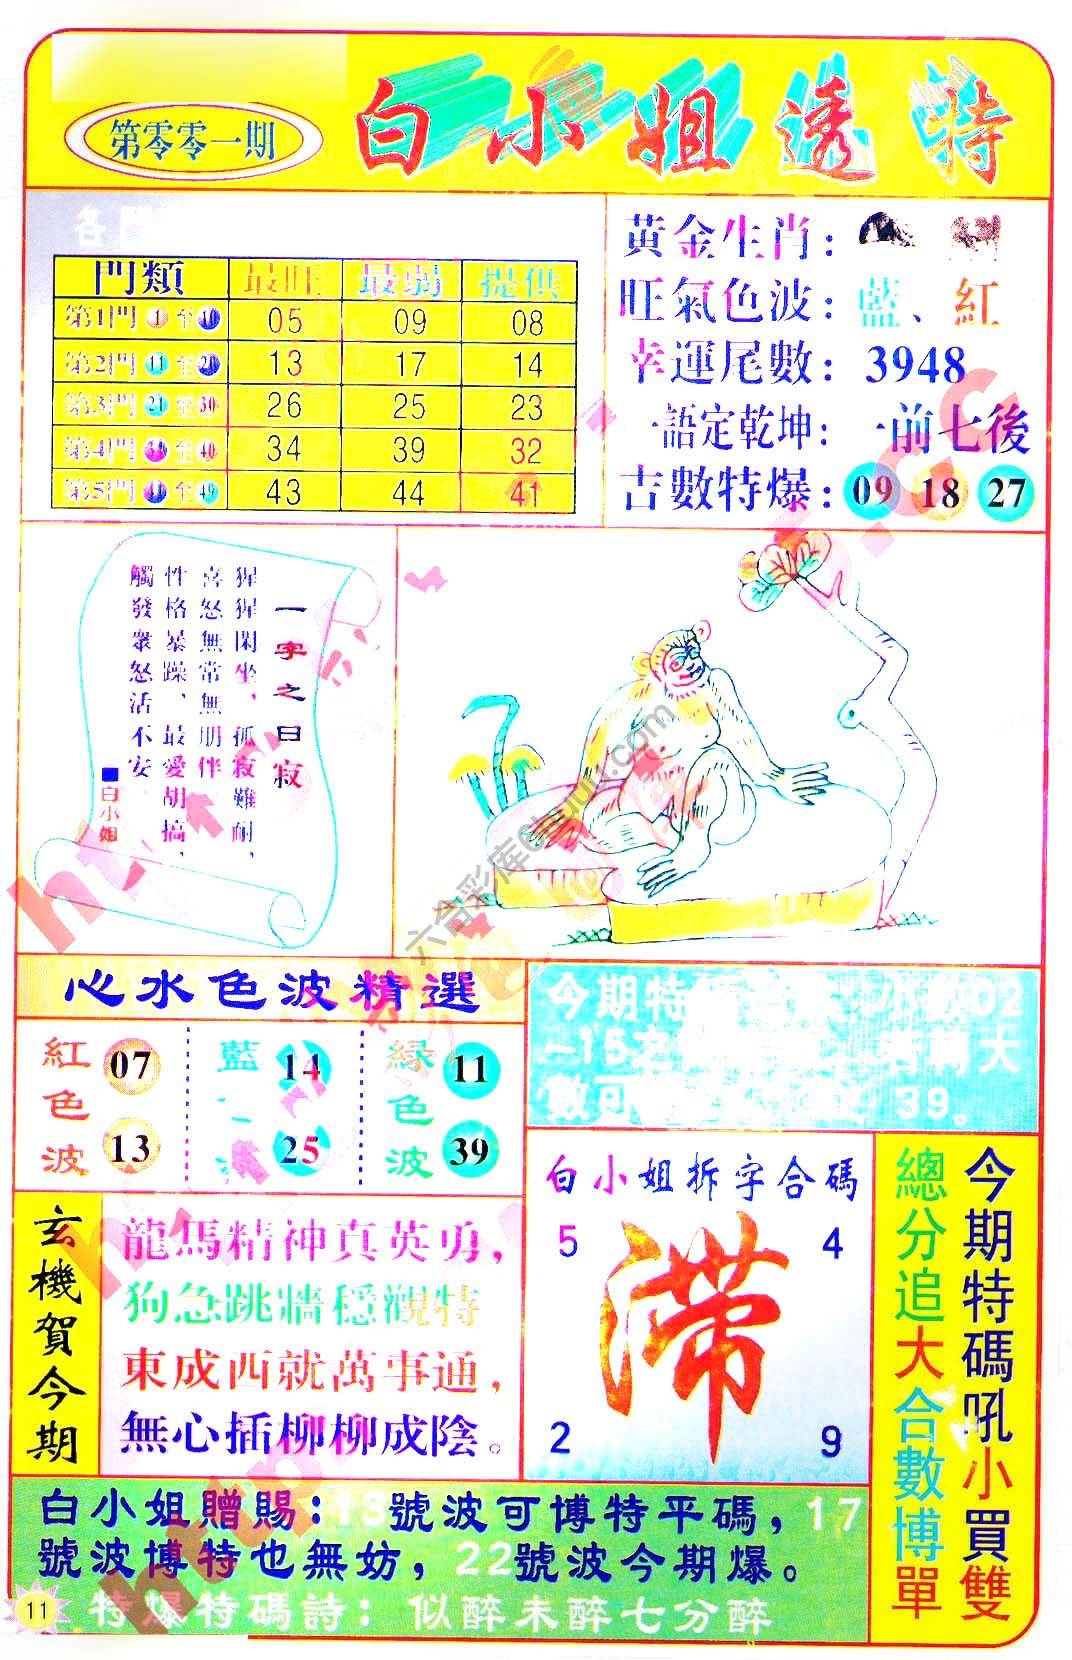 第零零一期
白小姐透特
各門
門類 最旺 最弱 提供
第1門 1 至 10 05 09 08
第2門 11 至 20 13 17 14
第3門 21 至 30 26 25 23
第4門 31 至 40 34 39 32
第5門 41 至 49 43 44 41
黃金生肖：
旺氣色波：藍、紅
幸運尾數：3948
一語定乾坤：一前七後
古數特爆：09 18 27
一字之曰寂
猩猩閑坐，孤寂難耐，
喜怒無常無朋伴
性格暴躁，最愛胡搞，
觸發衆怒活不安
■白小姐
六合彩库
心水色波精選
紅色波 07 13
藍 14 25
緑色波 11 39
今期特 02
-15 大
數可 39。
玄機賀今期
龍馬精神真英勇，
狗急跳牆穩觀特
東成西就萬事通，
無心插柳柳成陰。
白小姐拆字合碼
5 4
滯
2 9
今期特碼吼小買雙
總分追大合數博單
白小姐贈賜：13號波可博特平碼，17
號波博特也無妨，22號波今期爆。
特爆特碼詩：似醉未醉七分醉
11